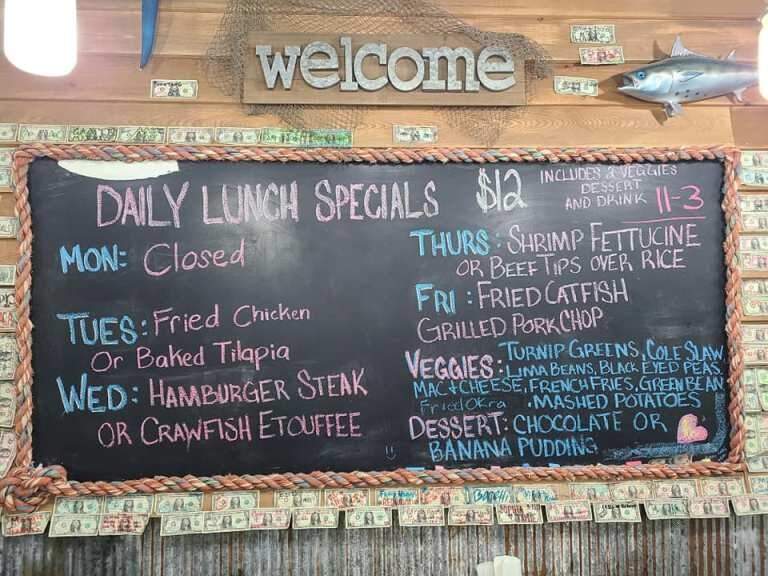 welcome
DAILY LUNCH SPECIALS $12 INCLUDES 2 VEGGIES
DESSERT
AND DRINK 11-3
MON: Closed
TUES: Fried Chicken
Or Baked Tilapia
WED: HAMBURGER STEAK
OR CRAWFISH ETOUFFEE
THURS: SHRIMP FETTUCINE
OR BEEF TIPS OVER RICE
FRI: FRIED CATFISH
GRILLED PORK CHOP
VEGGIES: TURNIP GREENS, COLE SLAW,
LIMA BEANS, BLACK EYED PEAS,
MAC & CHEESE, FRENCH FRIES, GREEN BEAN
Fried Okra . MASHED POTATOES
DESSERT: CHOCOLATE OR
BANANA PUDDING